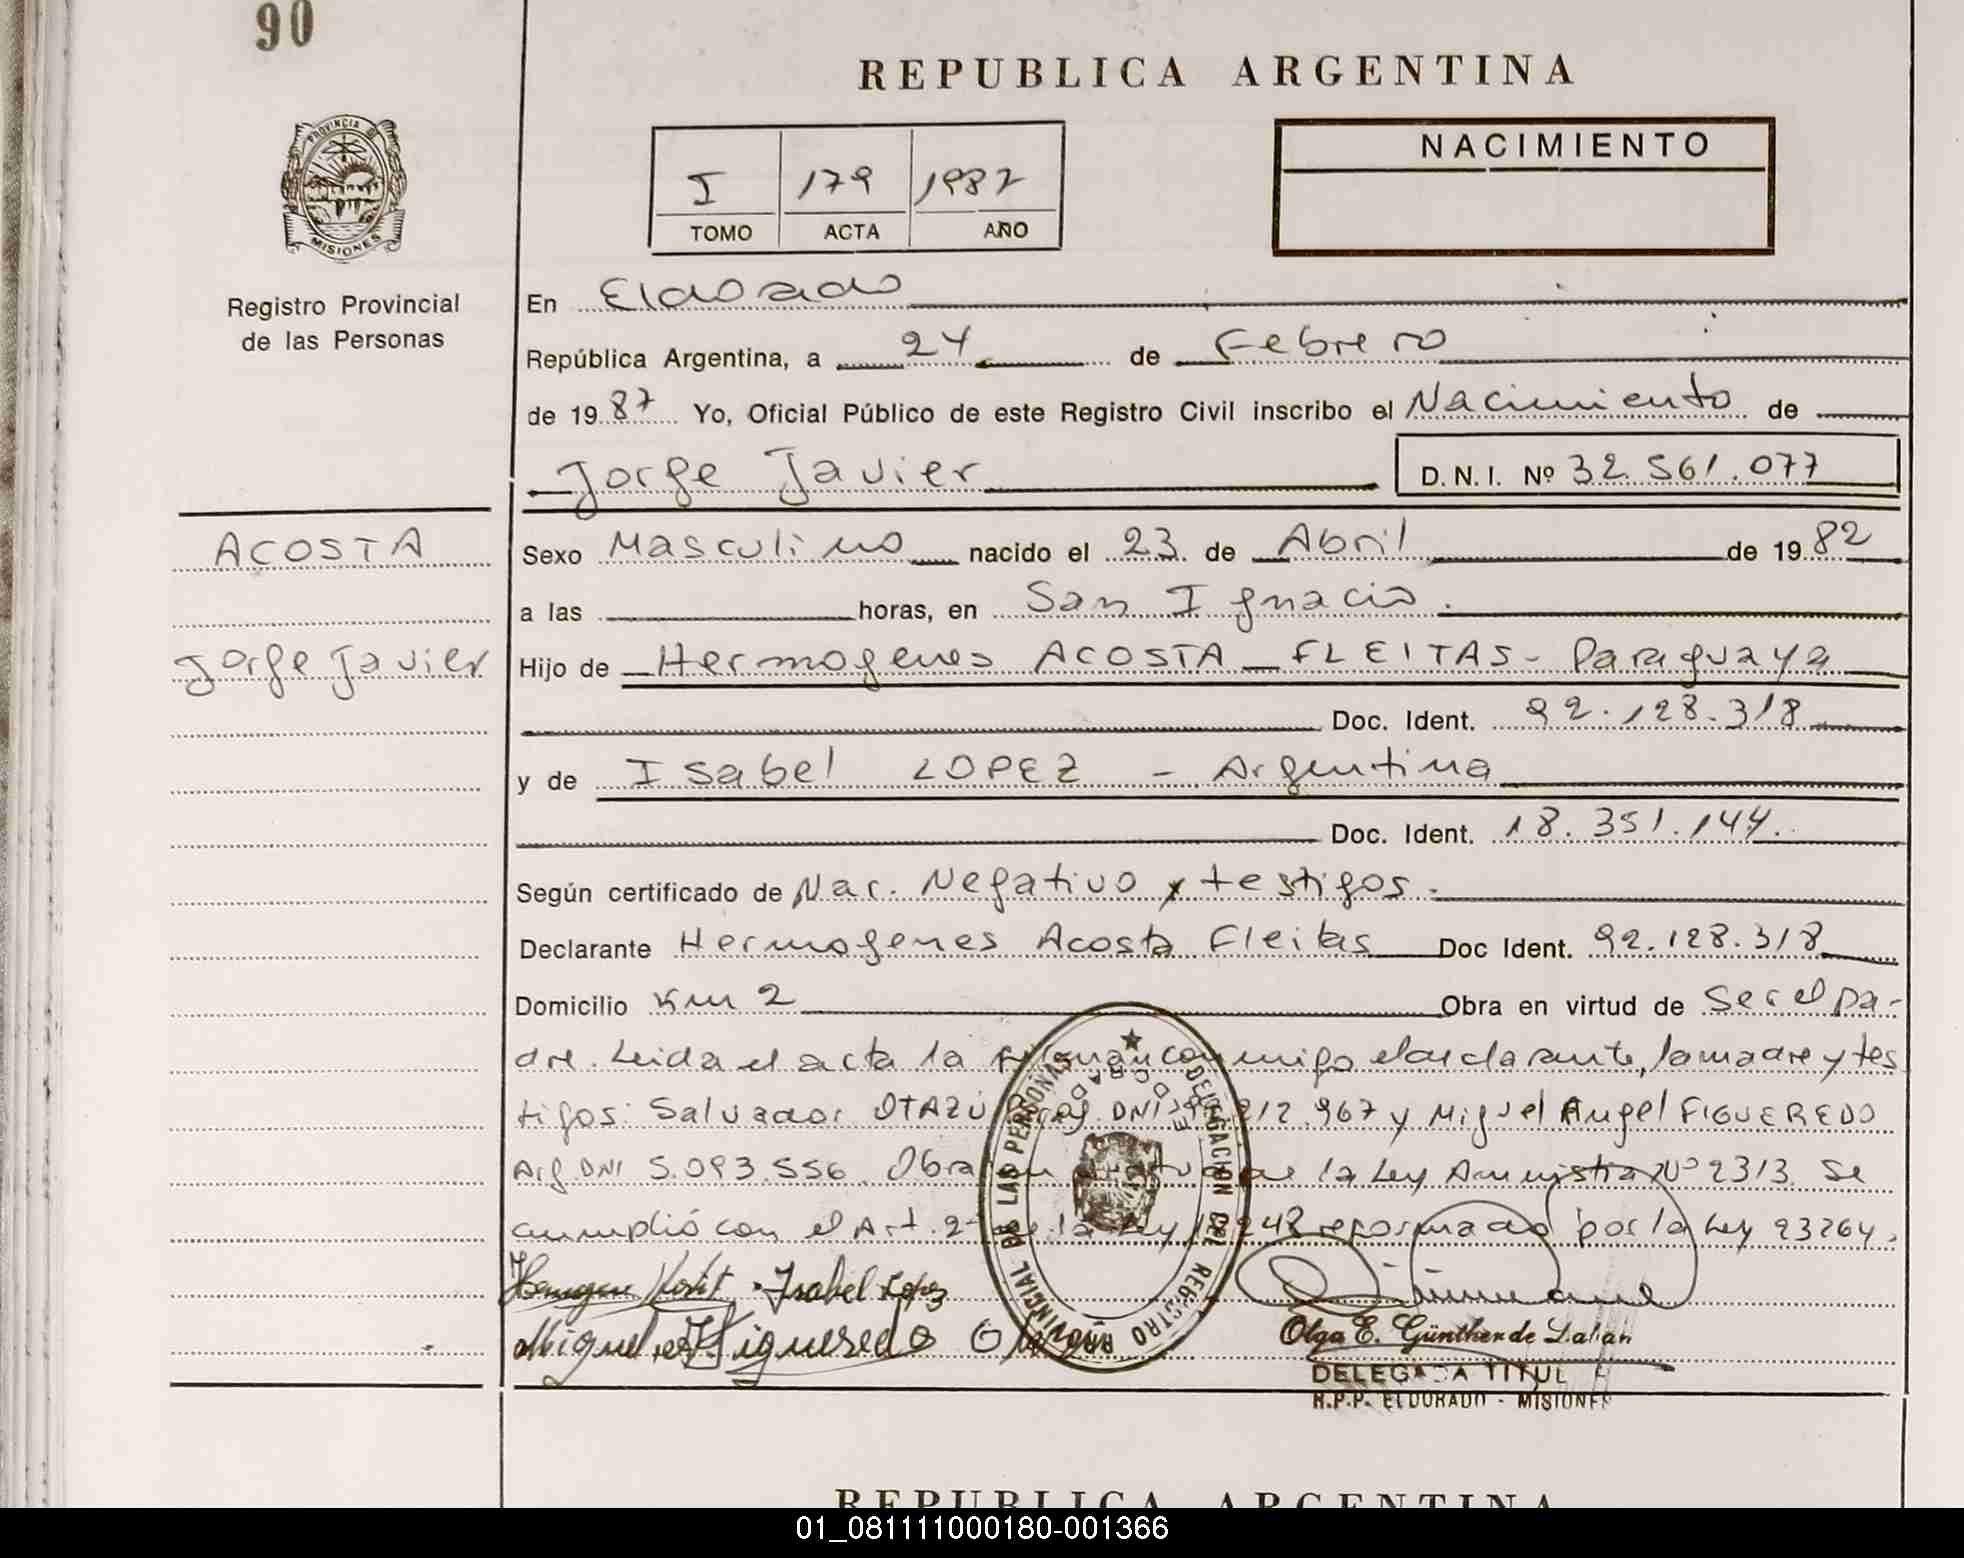 90
REPUBLICA ARGENTINA
PROVINCIA D
MISIONES
Registro Provincial
de las Personas
I 179 1987
TOMO ACTA AÑO
NACIMIENTO
En Eldorado
República Argentina, a 24 de Febrero
de 1987 Yo, Oficial Público de este Registro Civil inscribo el Nacimiento de
Jorge Javier D.N.I. Nº 32.561.077
ACOSTA
Jorge Javier
Sexo Masculino nacido el 23 de Abril de 1982
a las horas, en San Ignacio.
Hijo de Hermogenes ACOSTA FLEITAS - Paraguaya
Doc. Ident. 92.128.318
y de Isabel LOPEZ - Argentina
Doc. Ident. 18.351.144.
Según certificado de Nac. Negativo y testigos.
Declarante Hermogenes Acosta Fleitas Doc Ident. 92.128.318
Domicilio Km 2 Obra en virtud de Ser el pa-
dre. Leida el acta la firman conmigo el declarante, la madre y tes
tigos: Salvador OTAZU DNI 212.967 y Miguel Angel FIGUEREDO
Arg. DNI 5.093.556. Obra en virtud de la Ley Amnistia Nº 2313. Se
cumplió con el Art. 2 de la Ley 18248 reformado por la Ley 23264.
Isabel Lopez
Miguel A Figueredo
DELEGACION DEL REGISTRO PROVINCIAL DE LAS PERSONAS
ELDORADO
Olga E. Günther de Dalian
DELEGADA TITULAR
R.P.P. ELDORADO - MISIONES
REPUBLICA ARGENTINA
01_081111000180-001366